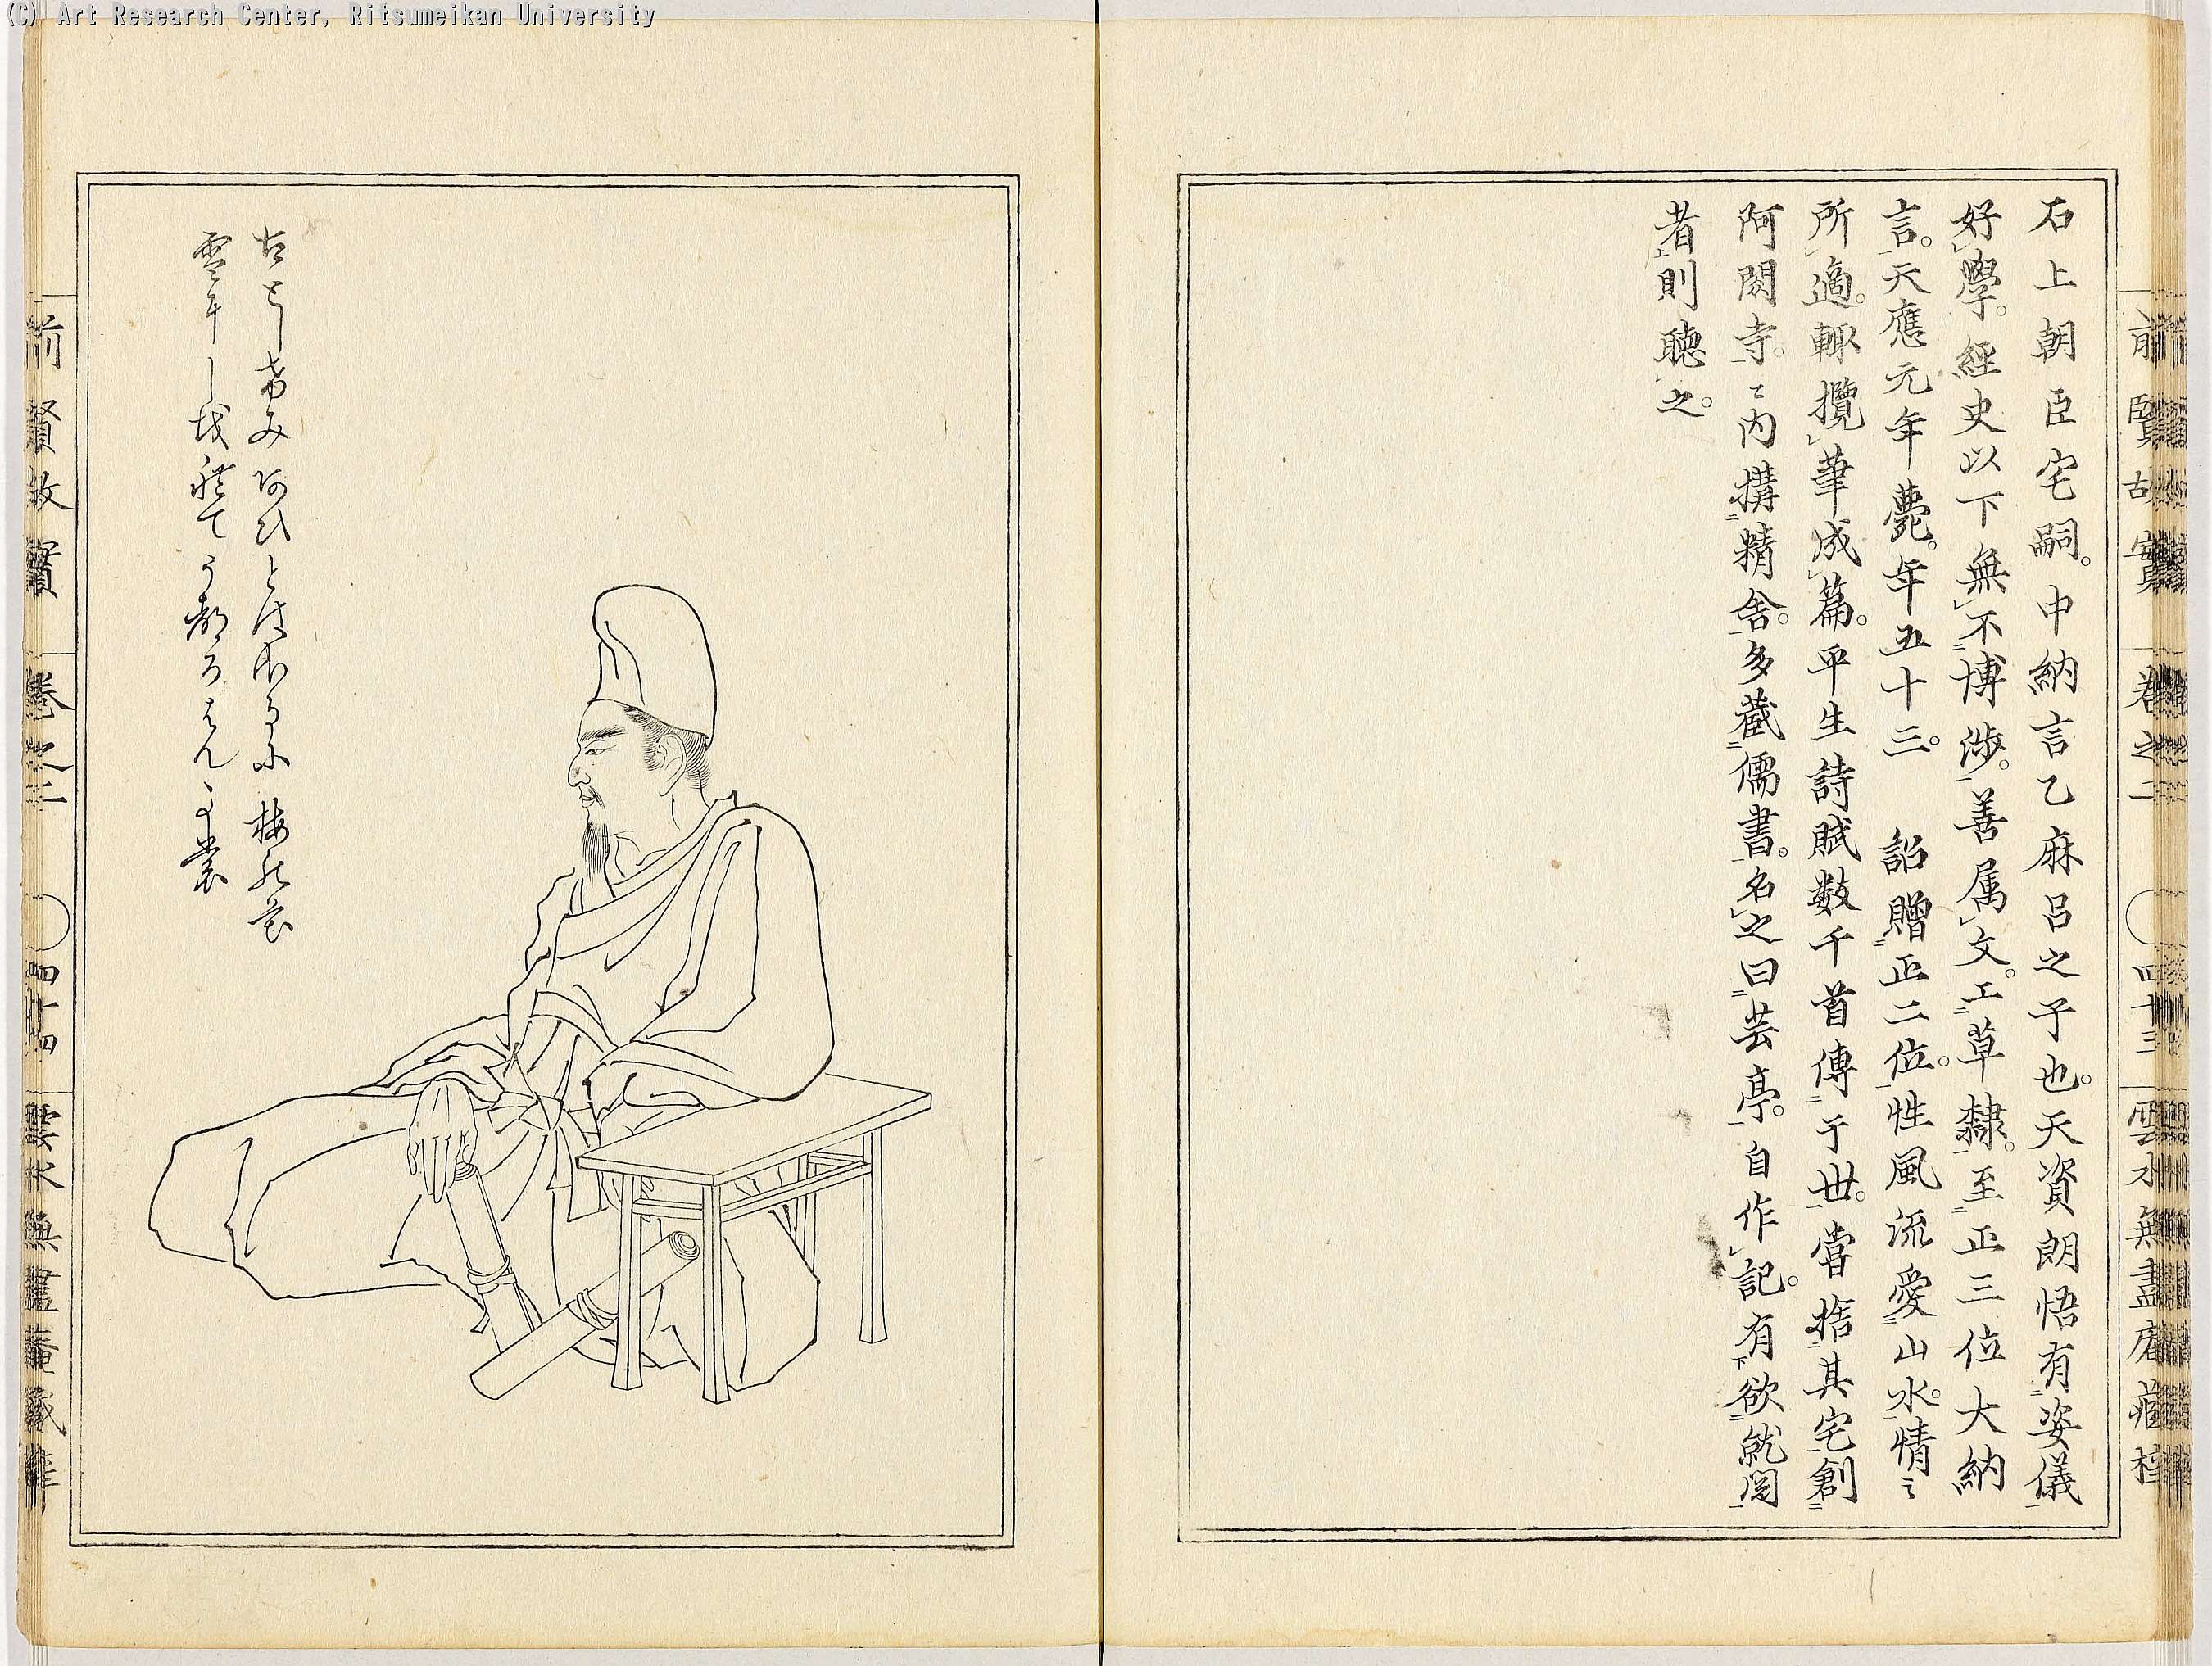 (C) Art Research Center, Ritsumeikan University
前賢故實 卷之二 ○四十三 雲水無盡庵藏梓
石上朝臣宅嗣。中納言乙麻呂之子也。天資朗悟有姿儀
好學。經史以下無不博渉。善属文。工草隸。至正三位大納
言。天應元年薨。年五十三。 詔贈正二位。性風流愛山水。情之
所適。輙攬筆成篇。平生詩賦数千首傳于世。嘗捨其宅創
阿閦寺。〻内搆精舍。多藏儒書。名之曰芸亭。自作記。有欲就閲
者則聴之。
古とし希み阿ひとは那くに 梅能花
雪耳し越禮てう都ろはん可裳
前賢故實 卷之二 ○四十四 雲水無盡菴藏梓